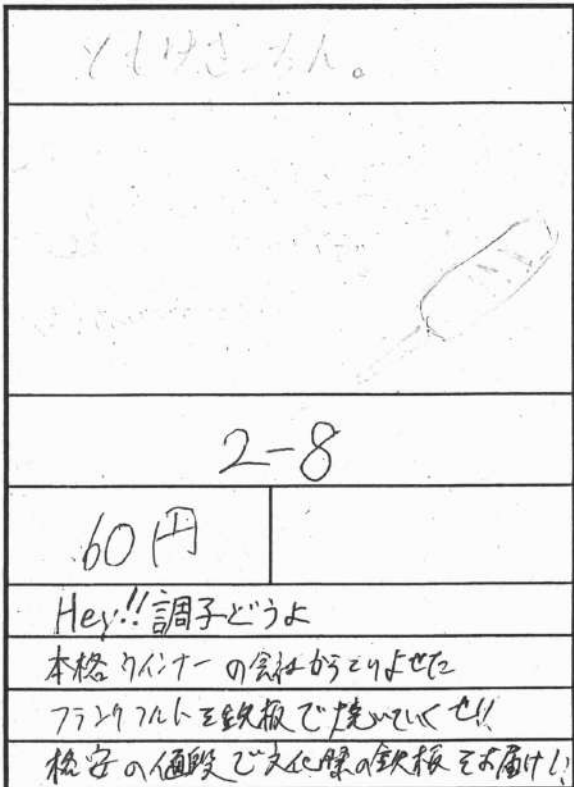 ともけさ
2-8
60円
Hey!!調子どうよ
本格ウインナーの会社からとりよせた
フランクフルトを鉄板で焼いていくぜ!!
格安の値段で文化祭の鉄板をお届け!!